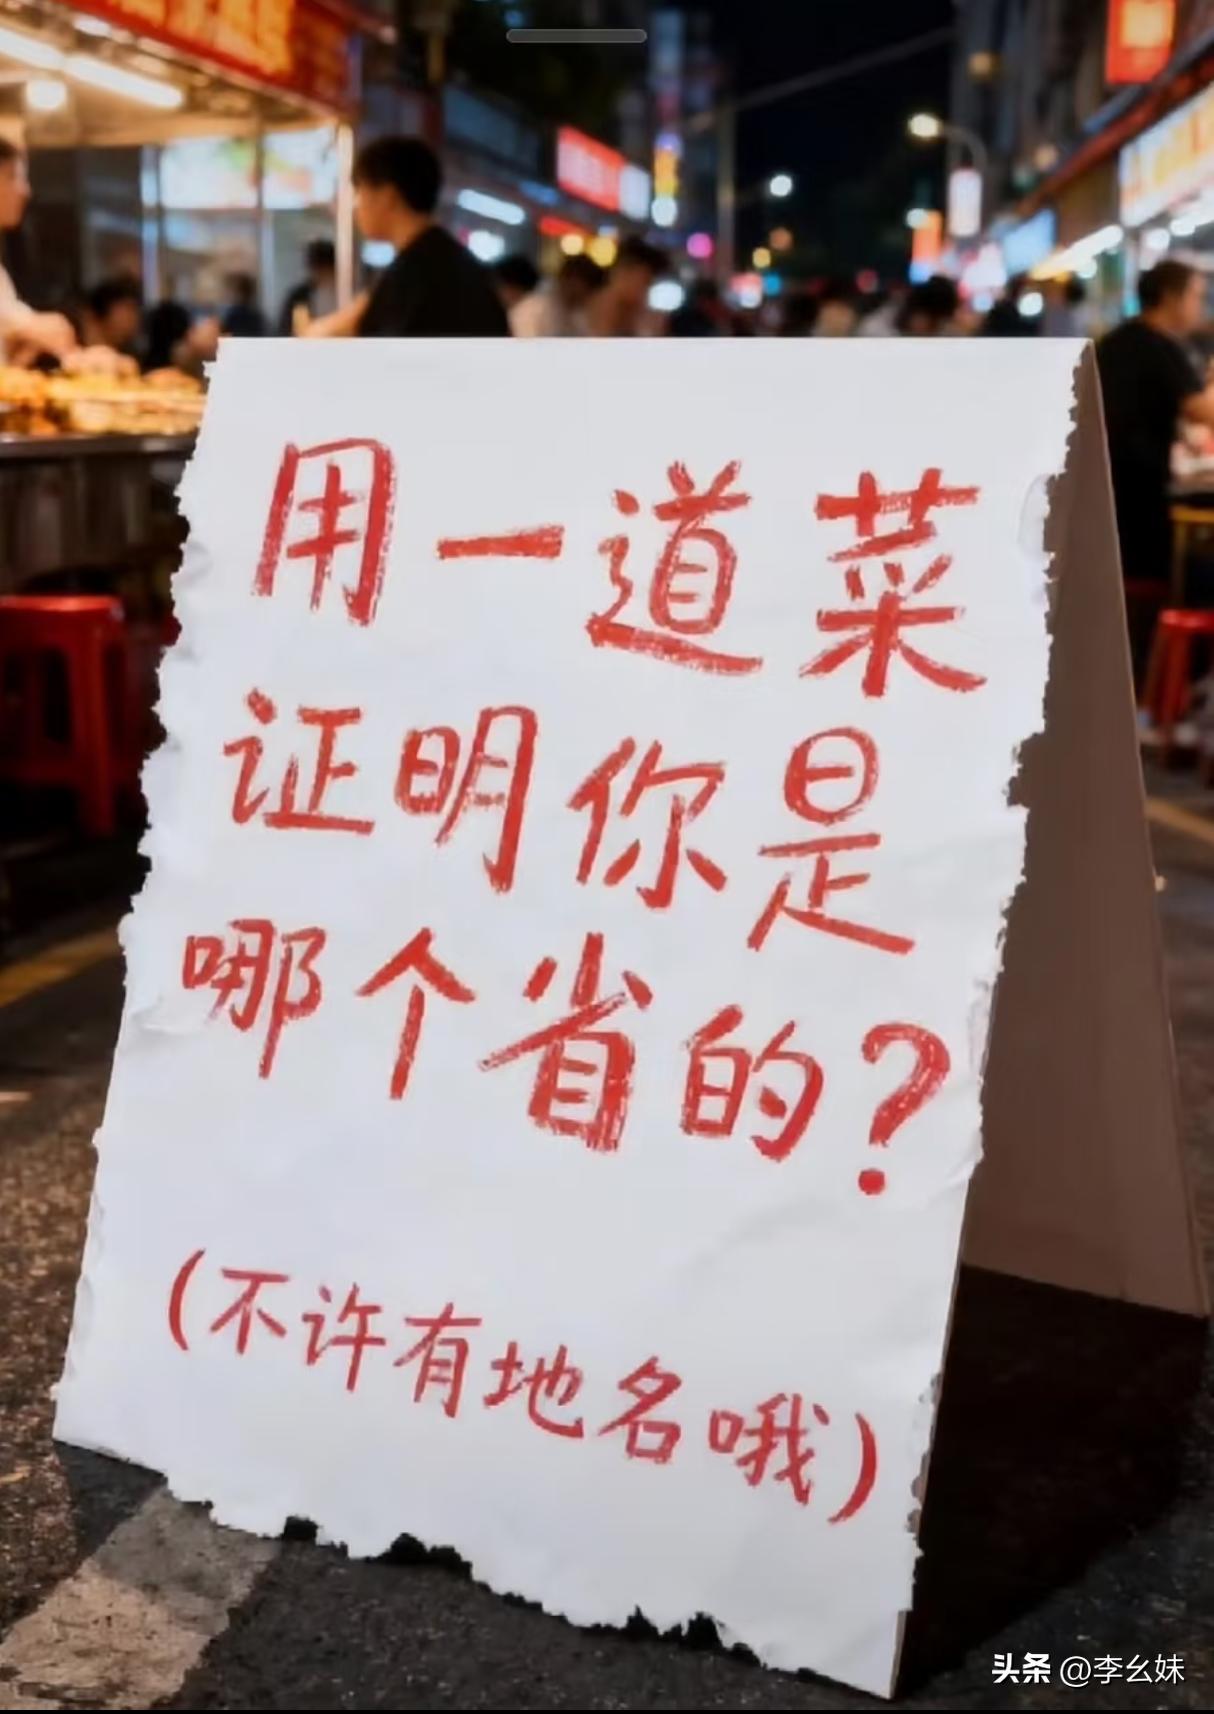 用一道菜
证明你是
哪个省的?
(不许有地名哦)
头条 @李幺妹